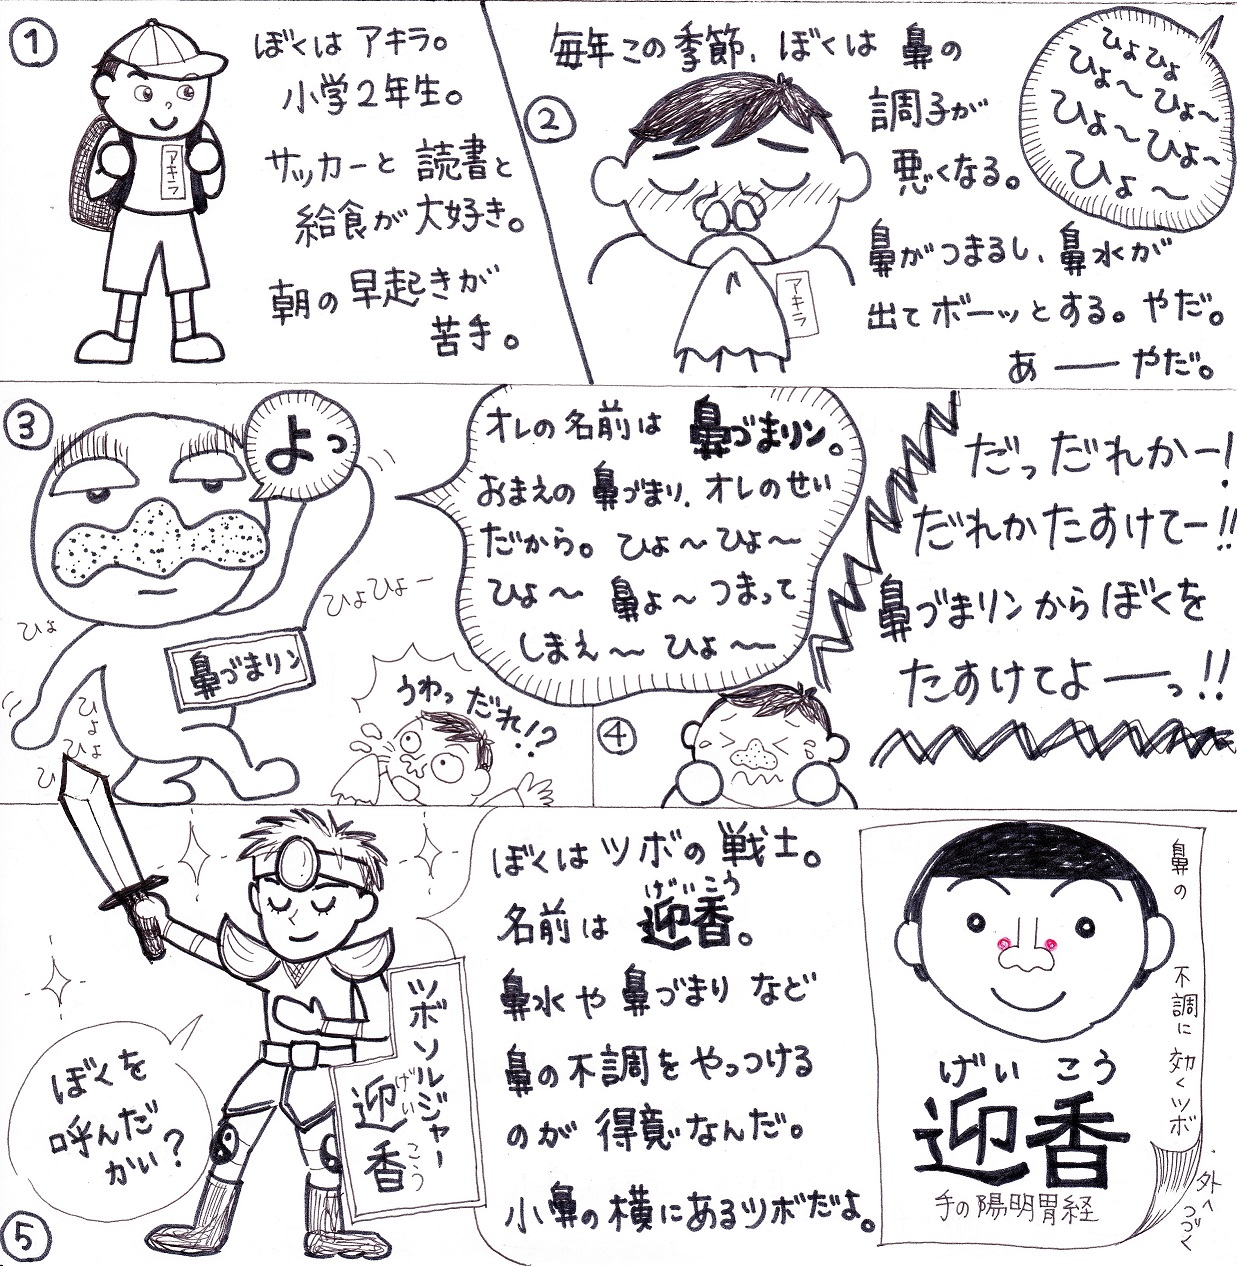 1
ぼくは アキラ。
小学2年生。
サッカーと 読書と
給食が 大好き。
朝の 早起きが
苦手。
アキラ
2
毎年 この 季節、ぼくは 鼻の
調子が
悪くなる。
鼻がつまるし、鼻水が
出て ボーッとする。やだ。
あ ── やだ。
ひょひょ
ひょ〜ひょ〜
ひょ〜ひょ〜
ひょ〜
アキラ
3
よっ
オレの 名前は 鼻づまリン。
おまえの 鼻づまり、オレのせい
だから。ひょ〜ひょ〜
ひょ〜 鼻ょ〜 つまって
しまえ〜 ひょ〜
ひょひょー
ひょ
鼻づまリン
ひょ
ひょ
ひ
うわっ だれ!?
4
だっ だれかー!
だれか たすけてー!!
鼻づまリン から ぼくを
たすけてよ──っ!!
5
ぼくを
呼んだ
かい?
ツボソルジャー
迎香
げいこう
ぼくは ツボの 戦士。
げいこう
名前は 迎香。
鼻水や 鼻づまり など
鼻の 不調を やっつける
のが 得意なんだ。
小鼻の 横に あるツボだよ。
鼻の 不調に 効くツボ
げい こう
迎香
手の陽明胃経
外へ つづく